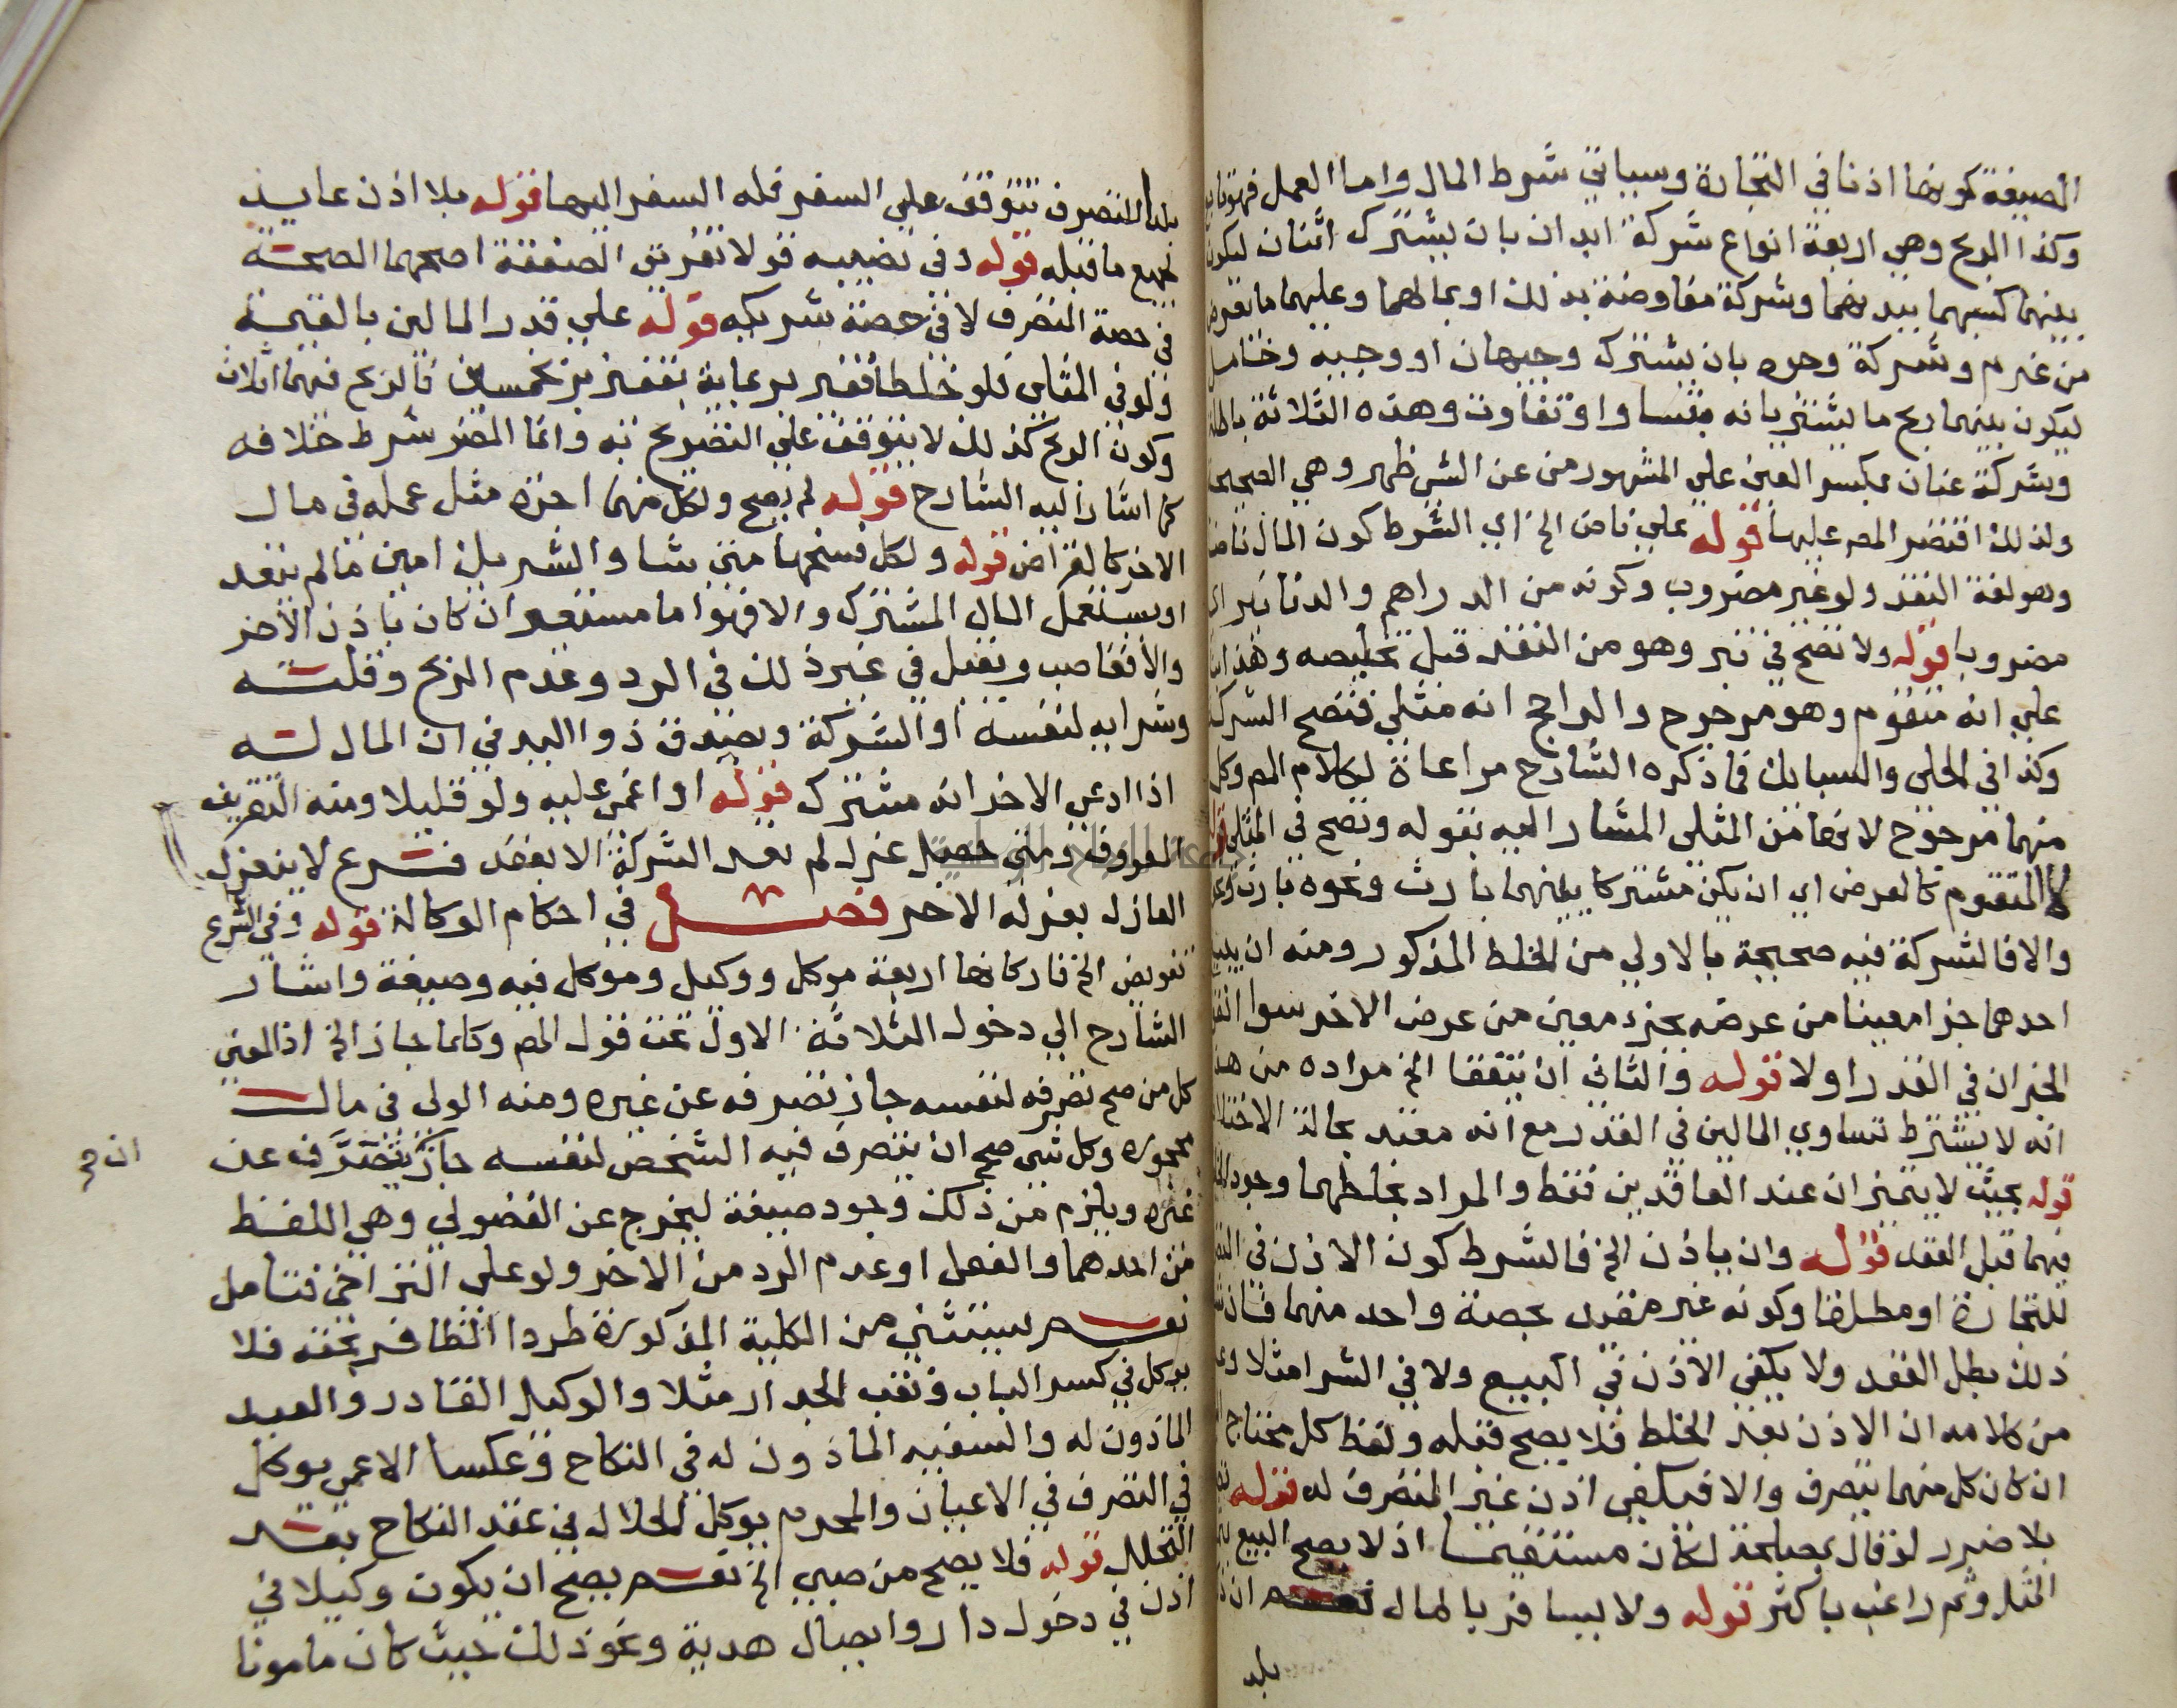 الصيغة كونها اذنا في التجارة وسياتي شرط المال واما العمل فهو تابع
وكذا الربح وهي اربعة انواع شركة ابدان بان يشترك اثنان ليكون
بينهما كسبهما ببدنهما وشركة مفاوضة بذلك او بمالهما وعليهما ما يعرض
من غرم وشركة وجوه بان يشترك وجيهان او وجيه وخامل
ليكون بينهما ربح ما يشتريانه بتساو او تفاوت وهذه الثلاثة باطلة
وشركة عنان بكسر العين على المشهور من عن الشي ظهر وهي الصحيحة
ولذلك اقتصر المص عليها قوله على ناض الخ اي الشرط كون المال ناضا
وهو لغة النقد ولو غير مضروب وكونه من الدراهم والدنانير اي
مضروبا قوله ولا تصح في تبر وهو من النقد قبل تخليصه وهذا
علي انه متقوم وهو مرجوح والراجح انه مثلي فتصح الشركة
وكذا في الحلي والسبائك فما ذكره الشارح مراعاة لكلام المص وكل
منهما مرجوح لانهما من المثلي المشار اليه بقوله وتصح في المثلي قوله
لا المتقوم كالعرض اي ان يكن مشتركا بينهما بارث ونحوه
والا فالشركة فيه صحيحة بالاولي من الخلط المذكور ومنه ان يبيع
احدهما جزا معينا من عرضه بجزء معين من عرض الاخر سوا اتفق
الجزان في القدر اولا قوله والثاني ان يتفقا الخ مراده من هذا
انه لا يشترط تساوي المالين في القدر مع انه مقيد بحالة الاختلاط
قوله بحيث لا يتميزان عند العاقدين فقط والمراد بخلطهما وجود
فيهما قبل العقد قوله وان ياذن الخ فالشرط كون الاذن في
للتجارة او مطلقا وكونه غير مقيد بحصة واحد منهما فان
ذلك بطل العقد ولا يكفي الاذن في البيع ولا في الشرا مثلا
من كلامه ان الاذن بعد الخلط فلا يصح قبله ولفظ كل محتاج
ان كان كل منهما يتصرف والا فيكفي اذن غير المتصرف له قوله
بلا ضرر لو قال بمصلحة لكان مستقيما اذ لا يصح البيع
المثل وثم راغب باكثر قوله ولا يسافر بالمال نعم ان
بلد
بلدا التصرف تتوقف علي السفر فله السفر اليها قوله بلا اذن عايد
لجميع ما قبله قوله وفي نصيبه قولا تفريق الصفقة اصحهما الصحة
في حصة المتصرف لا في حصة شريكه قوله على قدر المالين بالقيمة
ولو في المثلي فلو خلطا قفيز بر بماية بقفيز بر بخمسين فالربح بينهما اثلاث
وكون الربح كذلك لا يتوقف علي التصريح به وانما المضر شرط خلافه
كما اشار اليه الشارح قوله لم يصح ولكل منهما اجرة مثل عمله في مال
الاخر كالقراض قوله ولكل فسخها متي شا والشريك امين ما لم يتعد
او يستعمل المال المشترك والا فهو اما مستعير ان كان باذن الاخر
والا فغاصب ويقبل في غير ذلك في الرد وعدم الربح وقلته
وشرايه لنفسه او الشركة ويصدق ذو اليد في ان المال له
اذا ادعي الاخر انه مشترك قوله او اغمي عليه ولو قليلا ومنه التقريف
المعروف ومتي حصل عزل لم تعد الشركة الا بعقد فرع لا ينعزل
العازل بعزله الاخر فصل في احكام الوكالة قوله وفي الشرع
تفويض الخ فاركانها اربعة موكل ووكيل وموكل فيه وصيغة واشار
الشارح الي دخول الثلاثة الاول تحت قول المص وكلما جاز الخ اذ المعني
كل من صح تصرفه لنفسه جاز تصرفه عن غيره ومنه الولي في مال
محجوره وكل شي صح ان يتصرف فيه الشخص لنفسه جاز ان يتصرف عن
غيره ويلزم من ذلك وجود صيغة ليخرج عن الفضولي وهي اللفظ
من احدهما والفعل او عدم الرد من الاخر ولو على التراخي فتامل
نعم يستثني من الكلية المذكورة طردا الظافر بحقه فلا
يوكل في كسر الباب ونقب الجدار مثلا والوكيل القادر والعبد
الماذون له والسفيه الماذون له في النكاح وعكسا الاعمي يوكل
في التصرف في الاعيان والمحرم يوكل الحلال في عقد النكاح بعد
التحلل قوله فلا يصح من صبي الخ نعم يصح ان يكون وكيلا في
اذن في دخول دار وايصال هدية ونحو ذلك حيث كان مامونا
ان صح